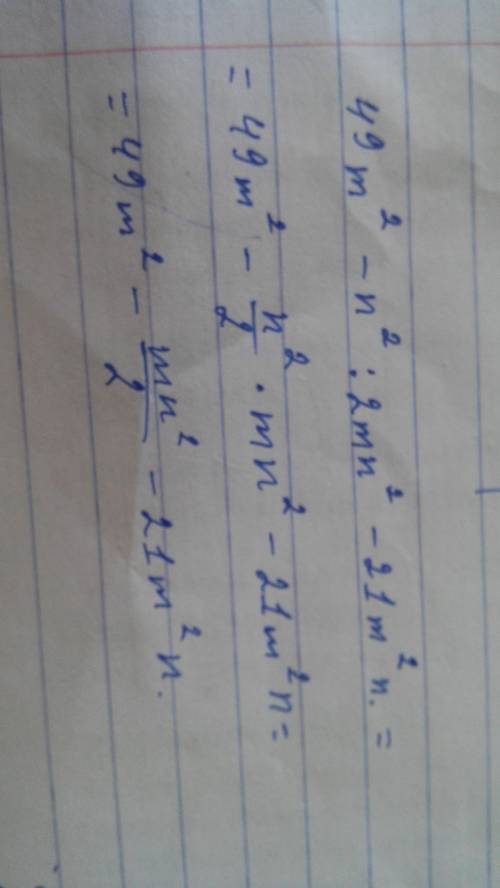 49m² - n² : 2mn² - 21m²n. =
= 49m² - n²/2 · mn² - 21m²n =
= 49m² - mn²/2 - 21m²n.